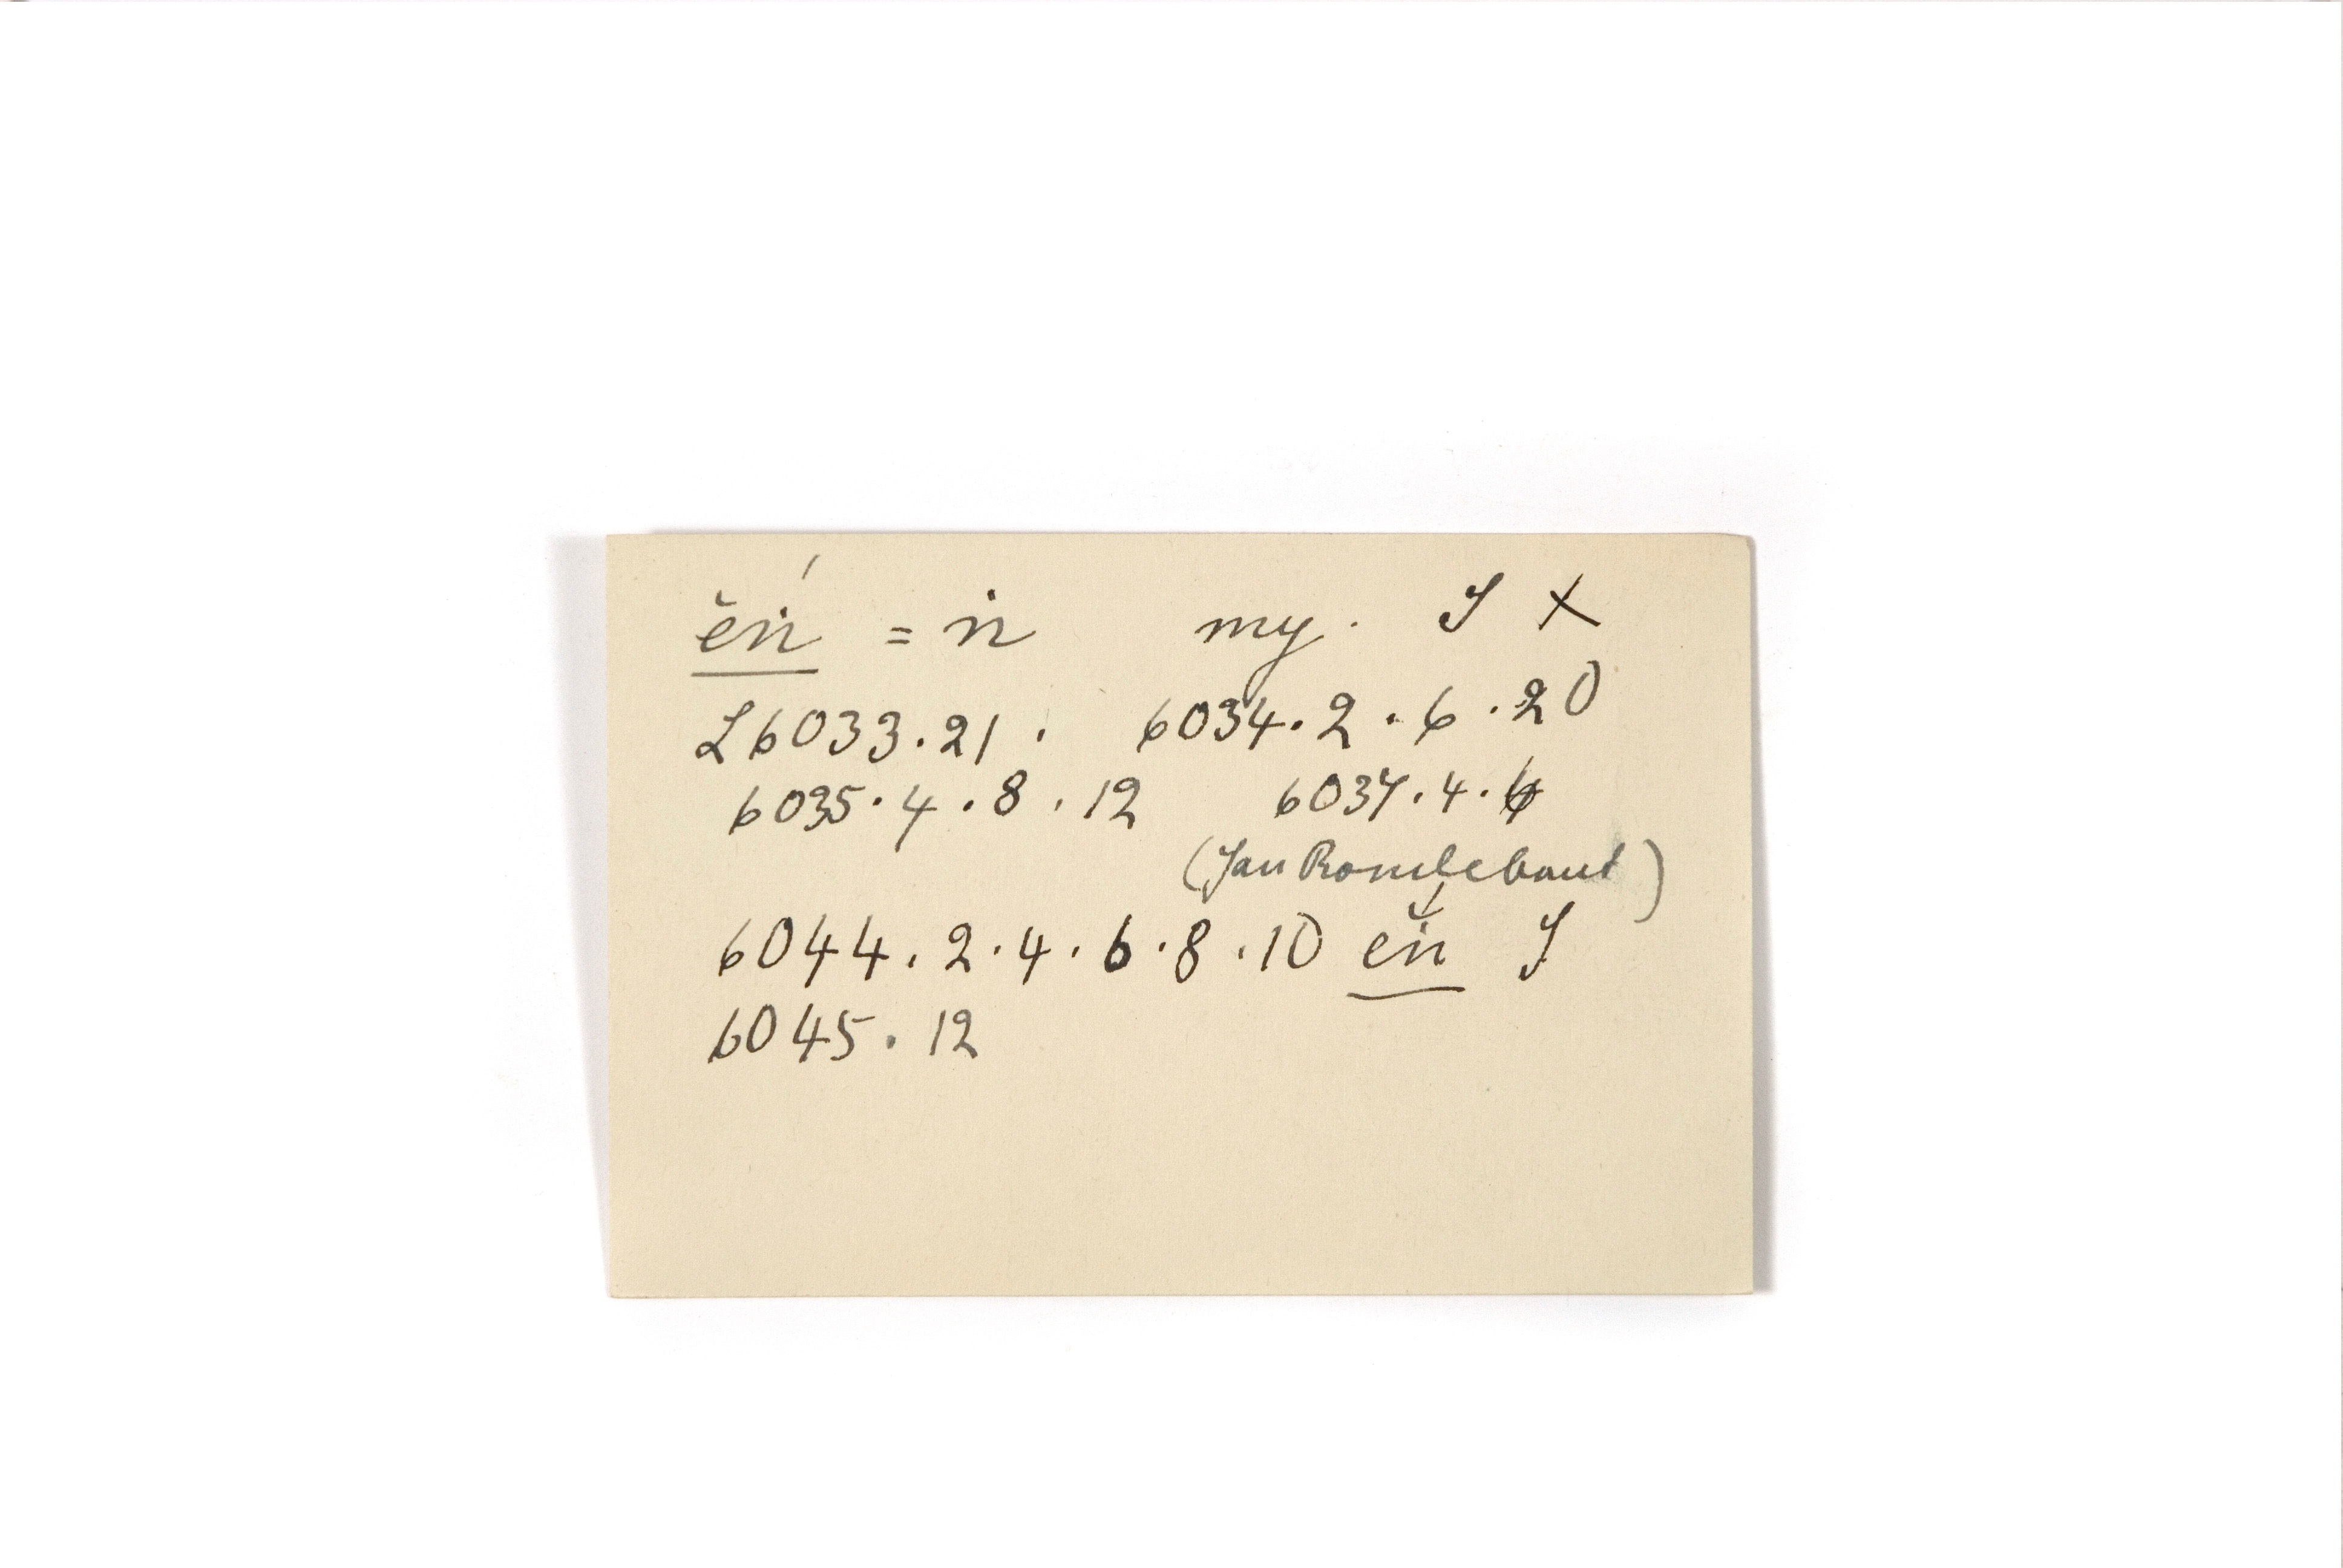 ĕṅ́ = ṅ my. J X
L6033.21. 6034.2.6.20
6035.4.8.12 6037.4.6
(Jan Rondebout)
6044.2.4.6.8.10 ĕṅ J
6045.12